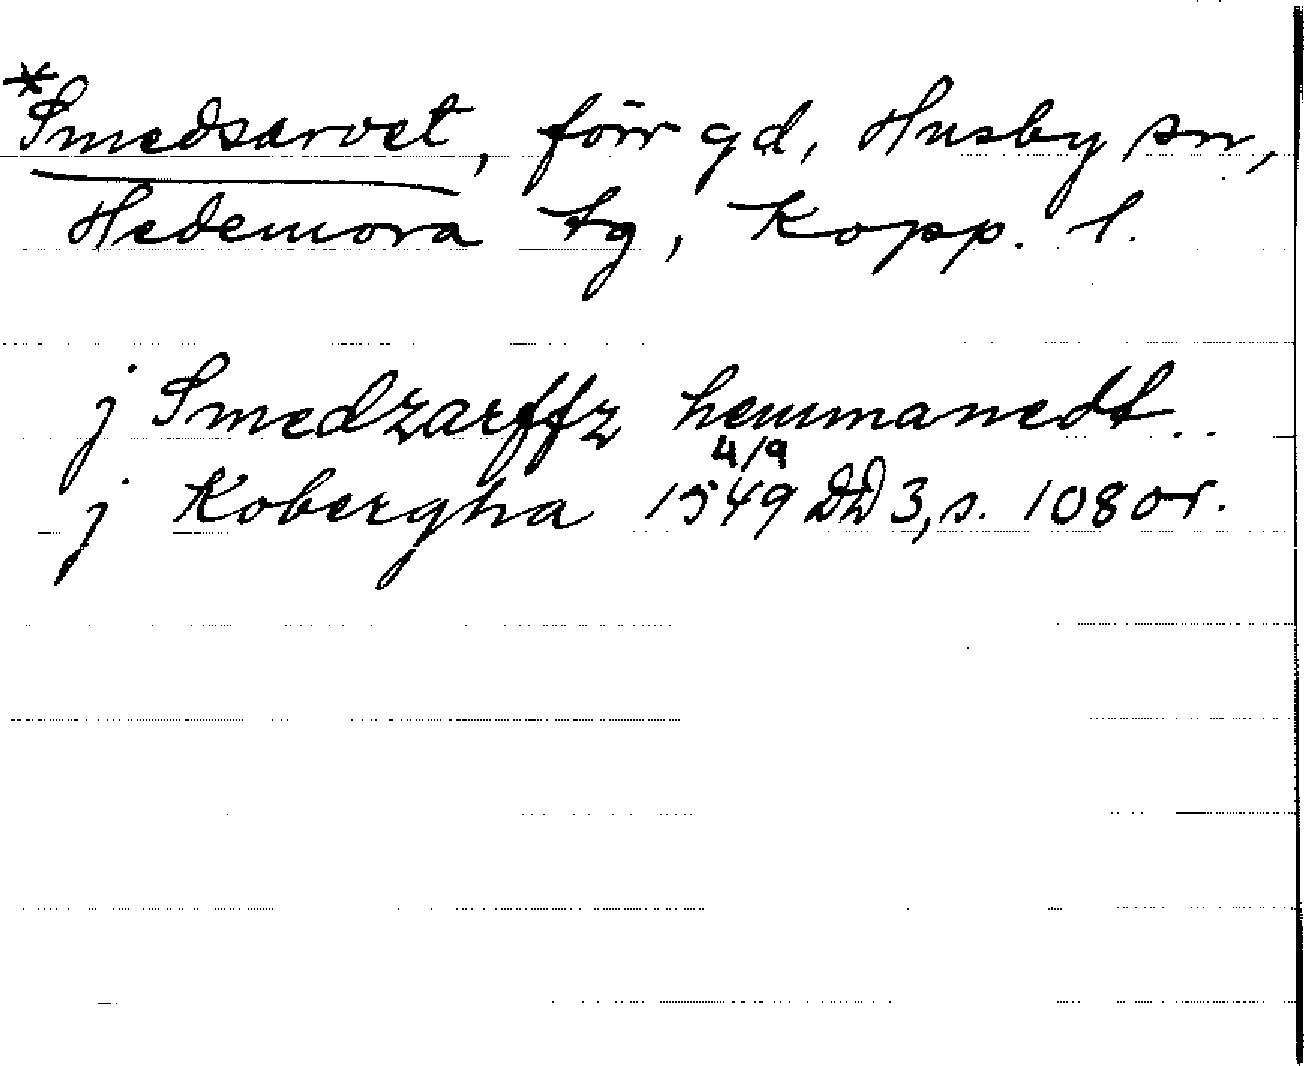 *Smedsarvet, förr gd, Husby sn,
Hedemora tg, Kopp. l.
j Smedzarffz hemmanedt..
j Kobergha 4/9 1549 DD 3, s. 108 or.